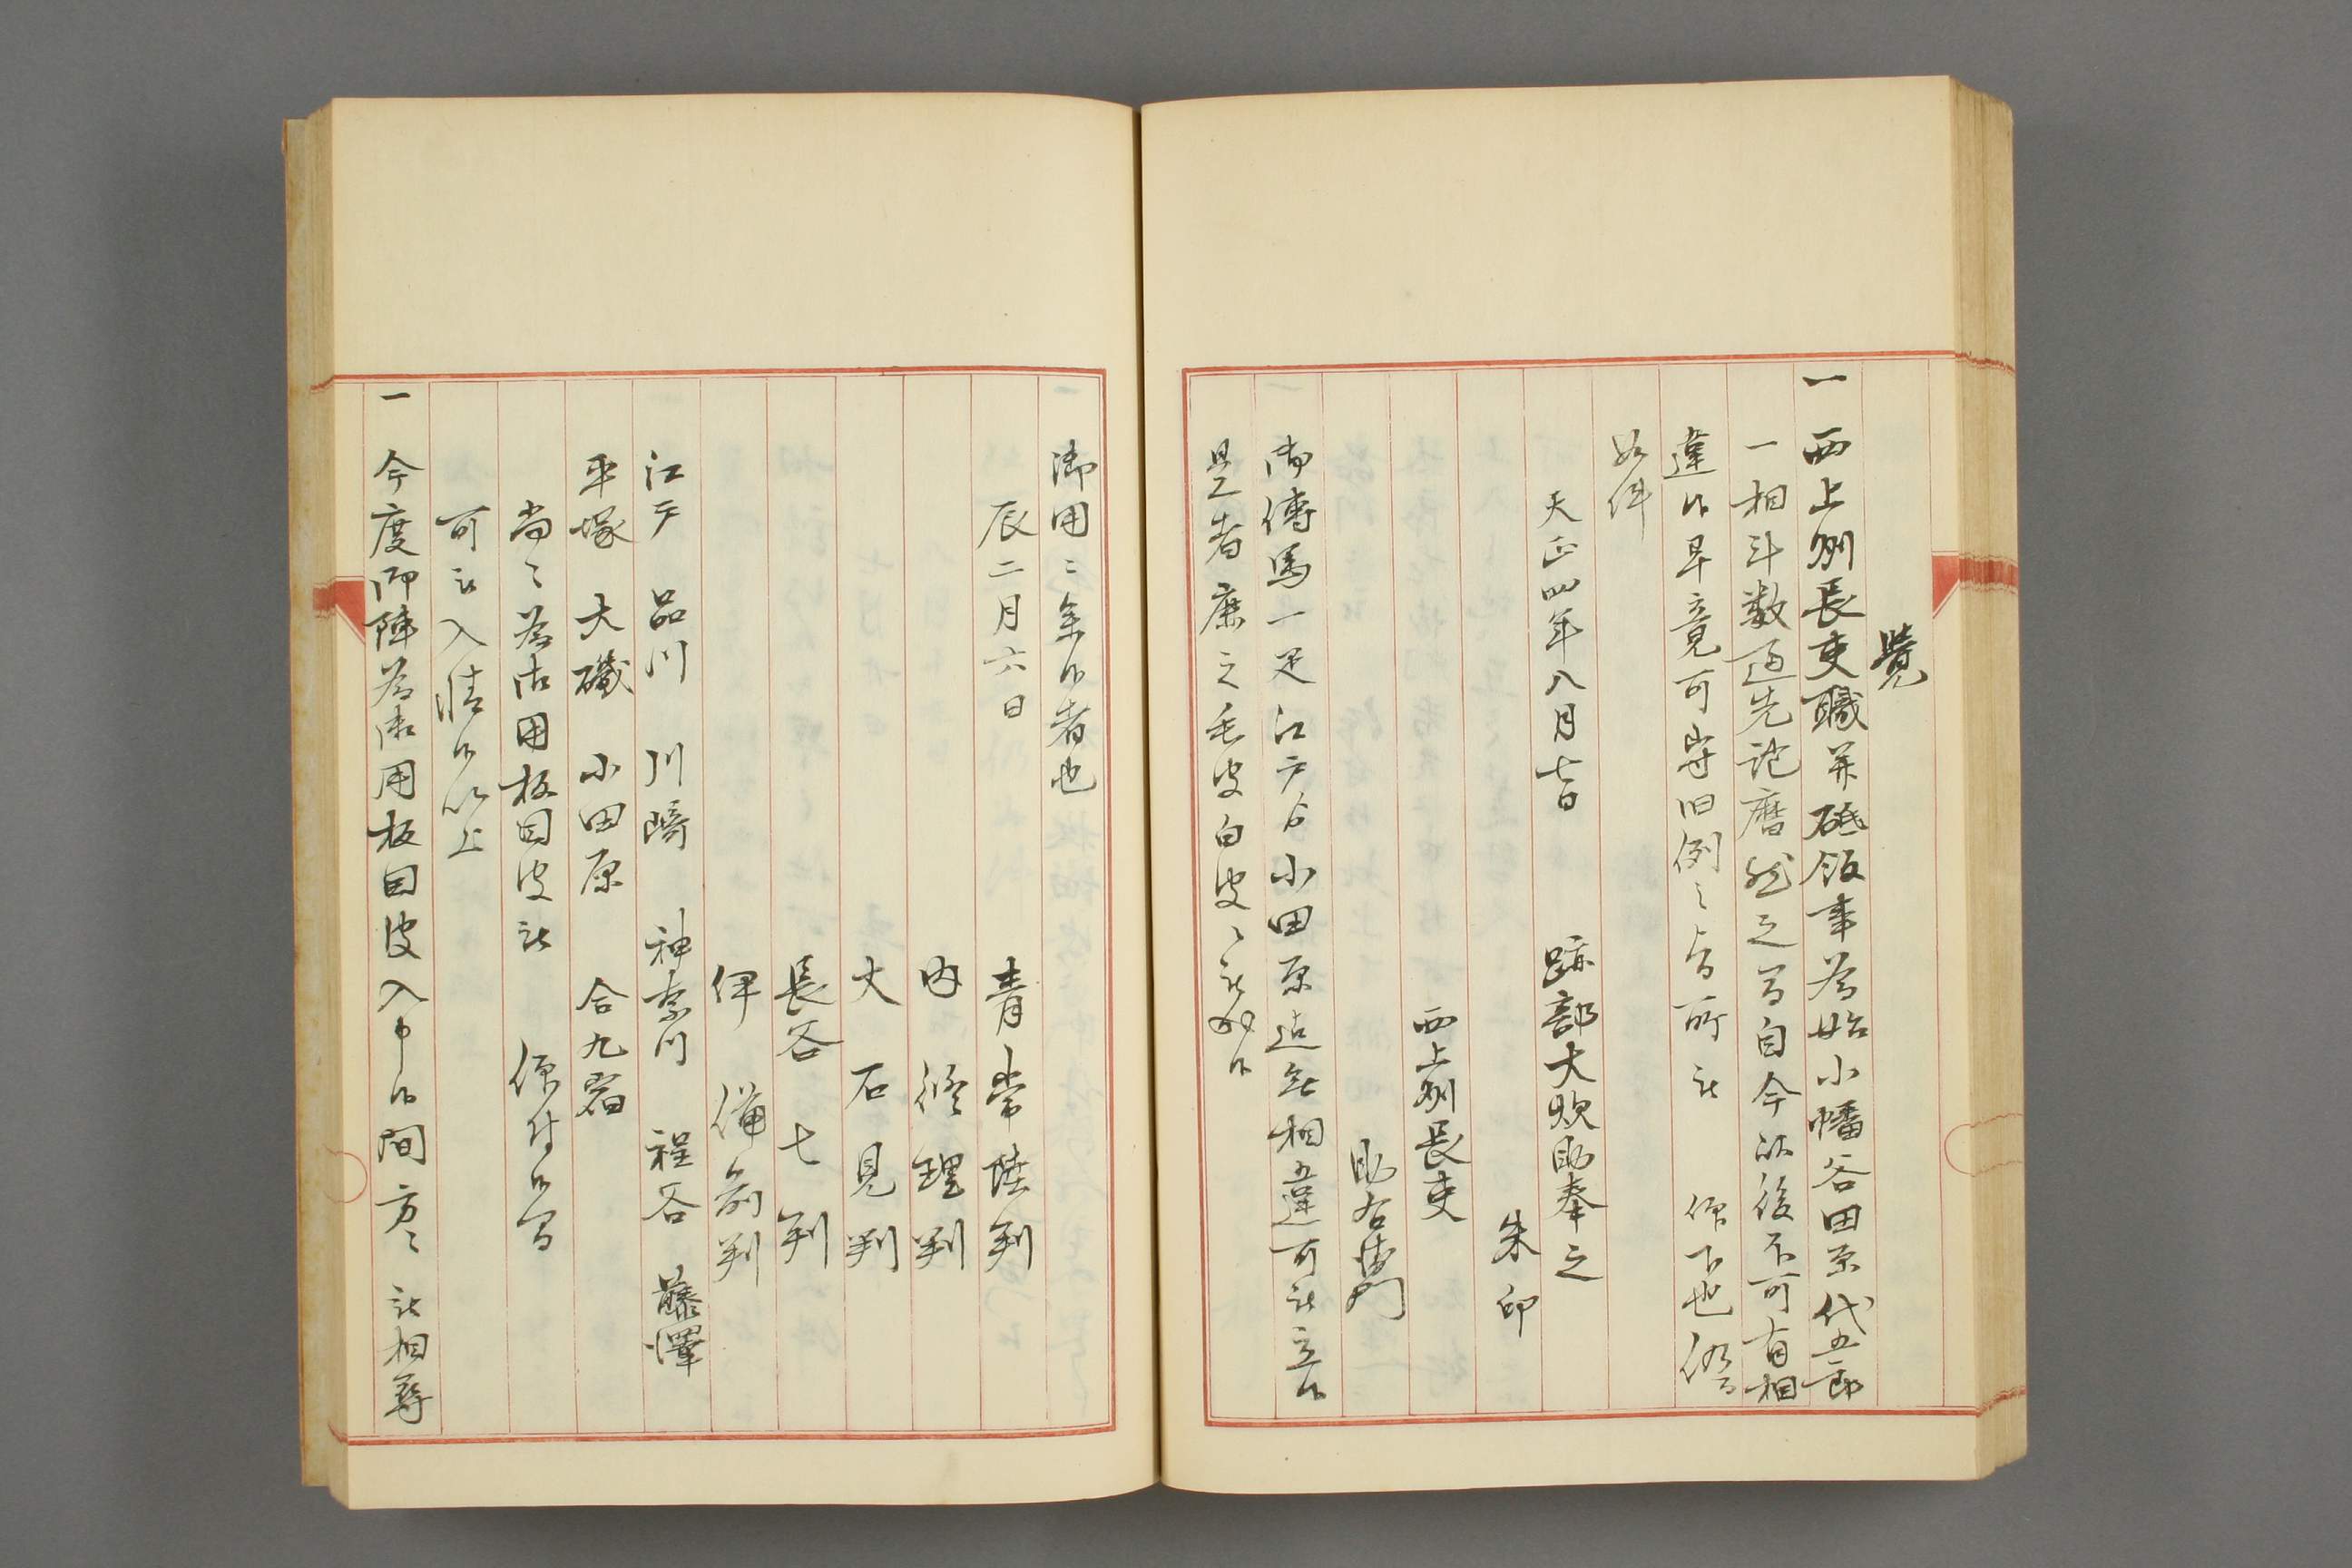 覺
一 西上刕長吏職并砥飯事為始小幡谷田原代五郎
一相斗数通先記暦然之間自今以後不可有相
違候畢竟可守旧例之旨所被 仰下也仍
如件
天正四年八月七日 跡部大炊助奉之
朱印
西上刕長吏
助右衛門
御傳馬一疋江戸ゟ小田原迄無相違可被立候
是者鹿之毛皮白皮被
御用ニ 候者也
辰二月六日 青常陸判
内修理判
大石見判
長谷七判
伊備前判
江戸 品川 川﨑 神奈川 程谷 藤澤
平塚 大磯 小田原 合九宿
尚々為御用板目皮被 仰付候間
可被入情候以上
一 今度御陣為御用板目皮入申候間方々被相尋